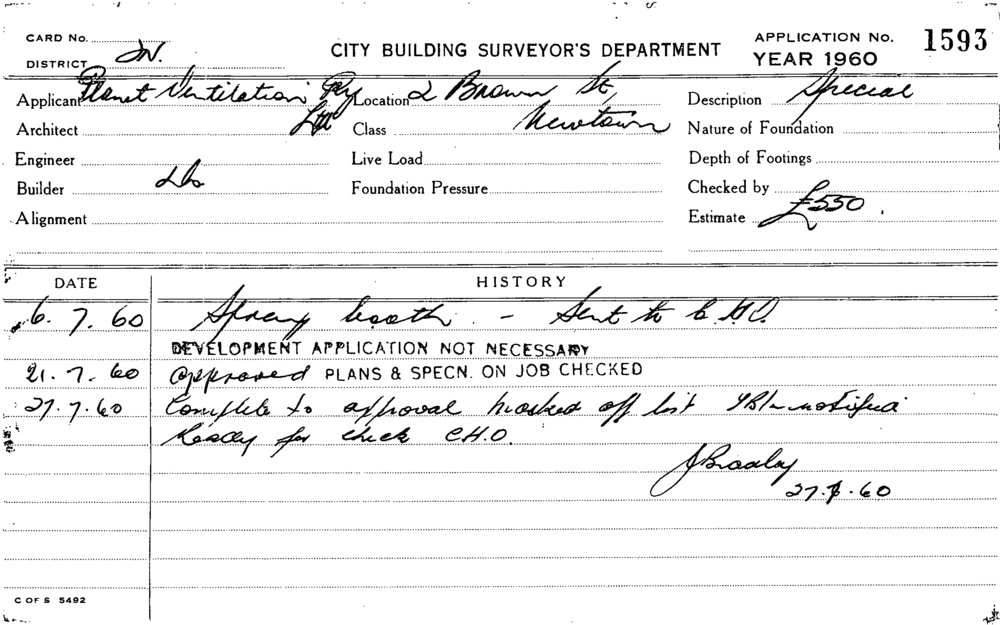 CARD No.
CITY BUILDING SURVEYOR'S DEPARTMENT
APPLICATION No. 1593
YEAR 1960
DISTRICT N.
Applicant Planet Ventilation Pty Location 2 Brown St, Description Special
Architect Ltd Class Newtown Nature of Foundation
Engineer Live Load Depth of Footings
Builder do Foundation Pressure Checked by
Alignment Estimate £550.
DATE HISTORY
6.7.60 Spray booth - Sent to C.H.O.
DEVELOPMENT APPLICATION NOT NECESSARY
21.7.60 approved PLANS & SPECN. ON JOB CHECKED
27.7.60 Complete to approval marked off list notified
Ready for check C.H.O.
J Bradley
27.7.60
C OF S 5492